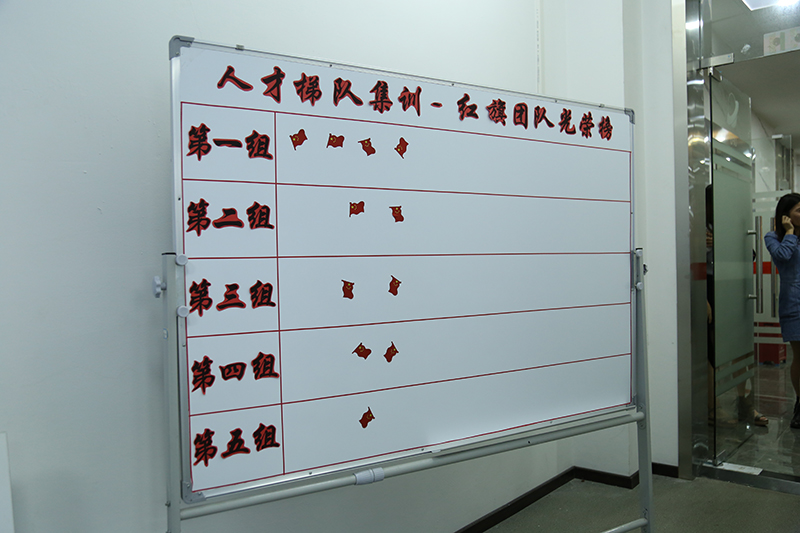 人才梯队集训-红旗团队光荣榜
第一组
第二组
第三组
第四组
第五组